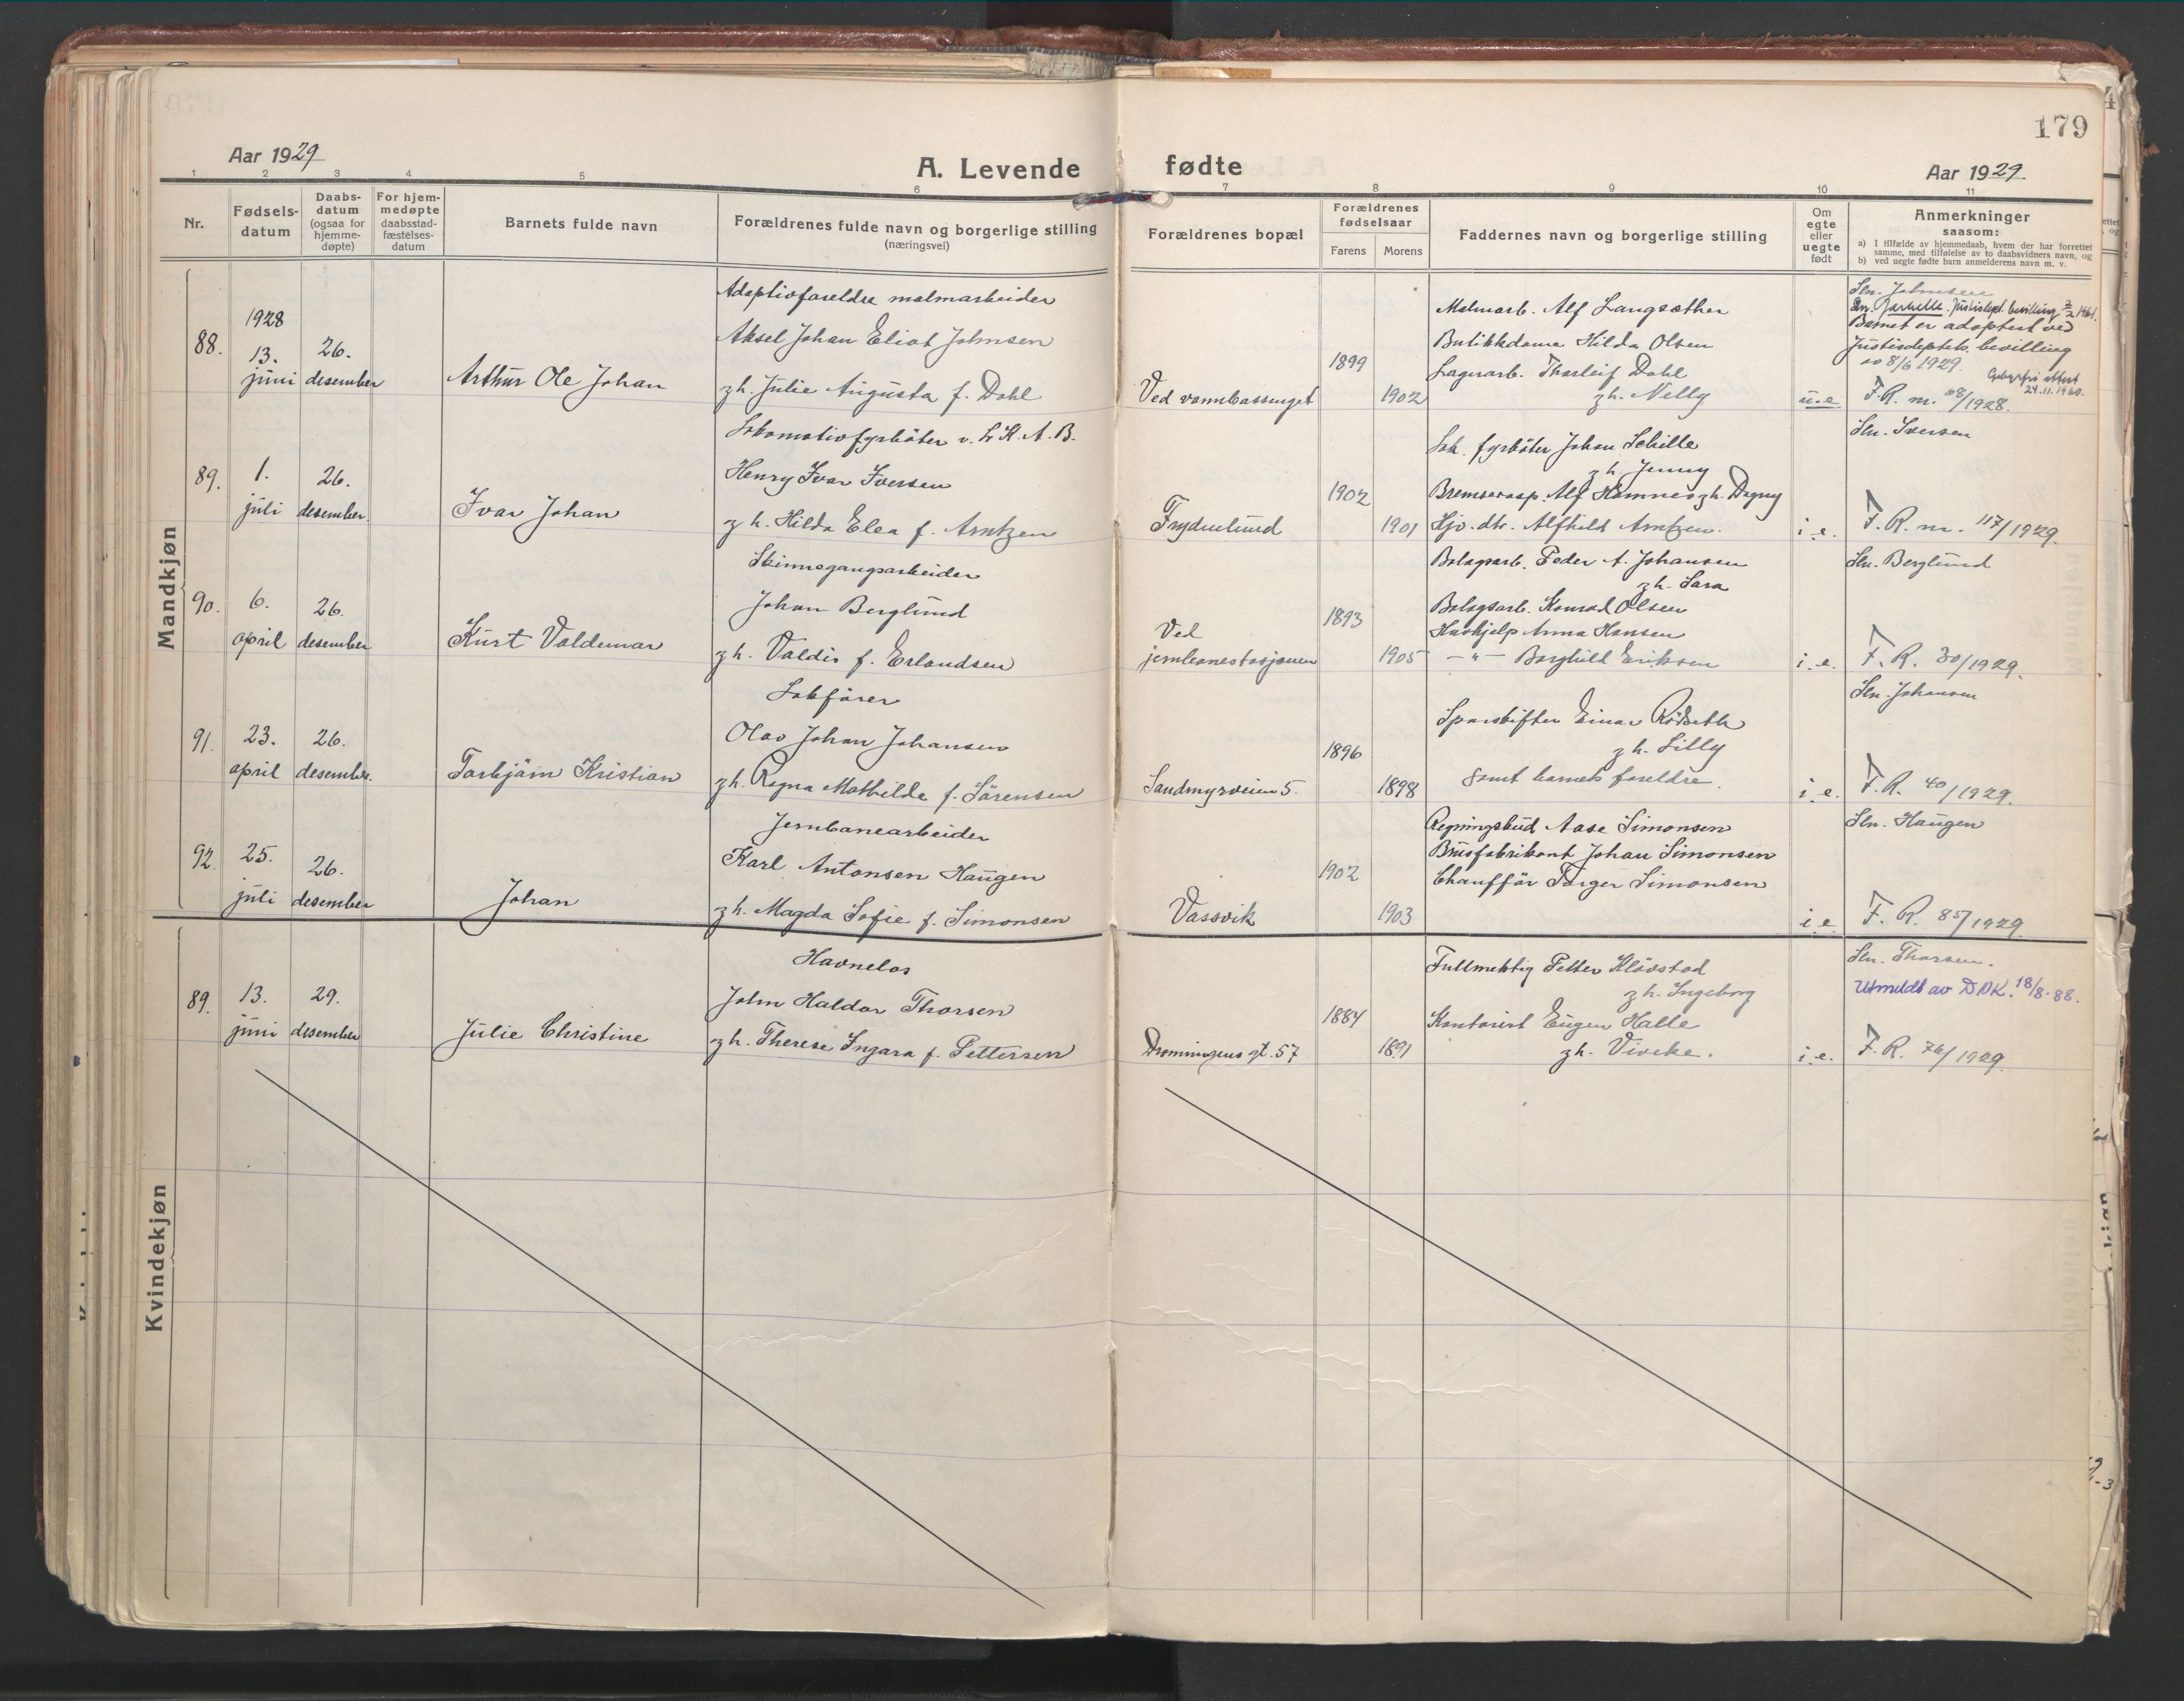 179
Aar 1929
A. Levende fødte
Aar 1929
1 2 3 4 5 6 7 8 9 10 11
Nr.
Fødsels-
datum
Daabs-
datum
(ogsaa for
hjemme-
døpte)
For hjem-
medøpte
daabsstad-
fæstelses-
datum
Barnets fulde navn
Forældrenes fulde navn og borgerlige stilling
(næringsvei)
Forældrenes bopæl
Forældrenes
fødselsaar
Farens
Morens
Faddernes navn og borgerlige stilling
Om
egte
eller
uegte
født
Anmerkninger
saasom:
a) I tilfælde av hjemmedaab, hvem der har forrettet
samme, med tilføielse av to daabsvidners navn, og
b) ved uegte fødte barn anmelderens navn m. v.
Mandkjøn
88.
1928
13.
juni
26.
desember
Arthur Ole Johan
Adoptivforeldre malmarbeider
Aksel Johan Eliot Johnsen
g h. Julie Augusta f. Dahl
Ved vannbassenget
1899
1902
Malmarb. Alf Langsæther
Butikkdame Hilda Olsen
Lagerarb. Thorleif Dahl
g h. Nelly
u.e
Sln. Johnsen
Justisdept. bevilling
Barnet er adoptert ved
Justisdeptets bevilling
av 8/6 1929.
24.11.1960.
F. R. nr. 68/1928.
89.
1.
juli
26.
desember
Ivar Johan
Lokomotivfyrbøter v. L K. A. B.
Henry Ivar Iversen
g h. Hilda Elea f. Arntzen
Frydenlund
1902
1901
Lok. fyrbøter Johan Schille
g h Jenny
Bremserasp. Alf Hamnes g h. Dagny
Hjv. dtr. Alfhild Arntzen.
i. e.
Sln. Iversen
F. R. nr. 117/1929.
90.
6.
april
26.
desember
Kurt Valdemar
Skinnegangsarbeider
Johan Berglund
g h. Valdis f. Erlandsen
Ved
jernbanestasjonen
1893
1905
Bolagsarb. Peder A. Johansen
g h. Sara
Bolagsarb. Konrad Olsen
Hushjelp Anna Hansen
— " — Borghild Eriksen
i. e.
Sln. Berglund
F. R. 30/1929.
91.
23.
april
26.
desember.
Torbjørn Kristian
Lokfører
Olav Johan Johansen
g h. Ragna Mathilde f. Sørensen
Sandmyrveien 5.
1896
1898
Sporskifter Einar Rødseth
g h. Lilly
samt barnets foreldre.
i. e.
Sln. Johansen
F. R. 40/1929.
92.
25.
juli
26.
desember
Johan
Jernbanearbeider
Karl Antonsen Haugen
g h. Magda Sofie f. Simonsen
Vassvik
1902
1903
Regningsbud Aase Simonsen
Brusfabrikant Johan Simonsen
Chauffør Torger Simonsen
i. e
Sln. Haugen
F. R. 85/1929
Kvindekjøn
89.
13.
juni
29.
desember
Julie Christine
Havnelos
John Haldor Thorsen
g h. Therese Ingara f. Pettersen
Dronningens gt. 57
1884
1891
Fullmektig Petter Kløvstad
g h. Ingeborg
Kontorist Eugen Halle
g h. Viveke.
i. e.
Sln. Thorsen.
Utmeldt av DNK. 18/8-88.
F. R. 76/1929